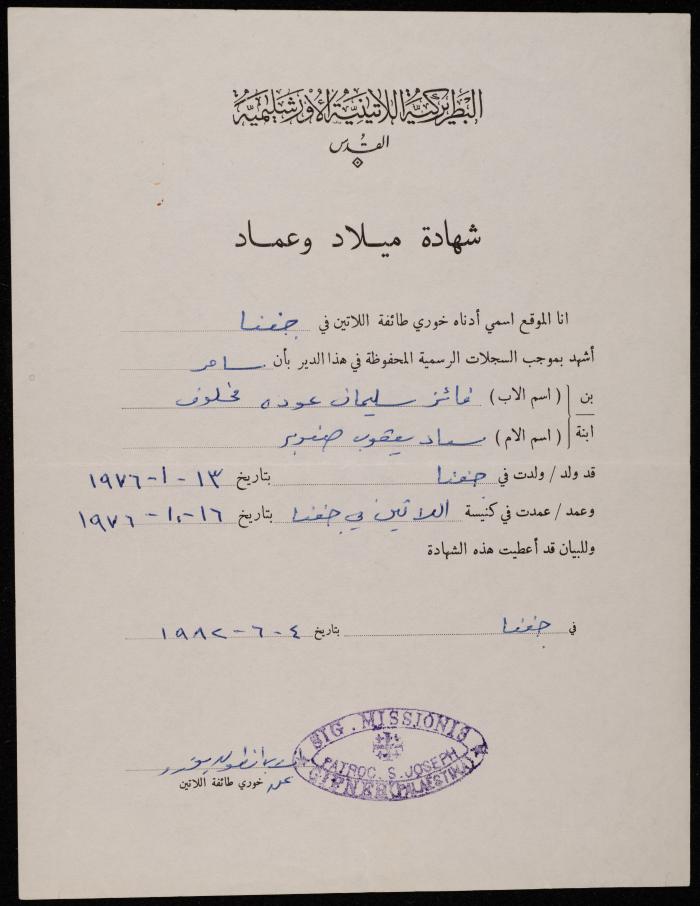 البطريركية اللاتينية الأورشليمية
القدس
شهادة ميلاد وعماد
انا الموقع اسمي أدناه خوري طائفة اللاتين في جفنا
أشهد بموجب السجلات الرسمية المحفوظة في هذا الدير بأن ساهر
بن ( اسم الاب ) فائز سليمان عوده مخلوف
ابنة ( اسم الام ) سعاد يعقوب صنوبر
قد ولد / ولدت في جفنا بتاريخ ١٣ - ١ - ١٩٧٦
وعمد / عمدت في كنيسة اللاتين في جفنا بتاريخ ١٦ - ١٠ - ١٩٧٦
وللبيان قد أعطيت هذه الشهادة
في جفنا بتاريخ ٤ - ٦ - ١٩٨٢
SIG. MISSIONIS
PATROC. S. JOSEPH
GIFNEH (PALAESTINA)
خوري طائفة اللاتين